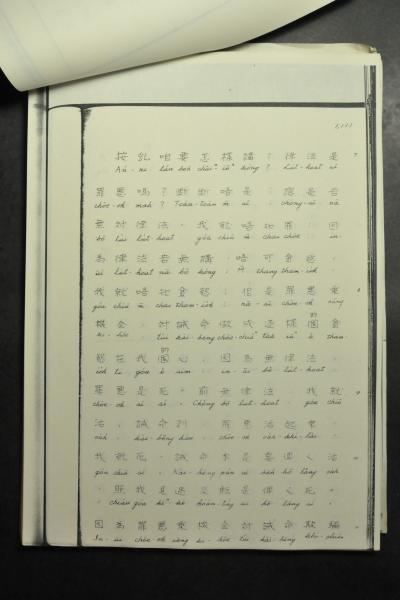 按呢咱要怎樣講？律法是
Án-ne lán beh chóaⁿ-iūⁿ kóng? Lu̍t-hoat sī
罪惡嗎？斷斷唔是。總是若
chōe-ok mah? Toān-toān m̄-sī. chóng-sī nā
無對律法，我就唔知罪。因
bô tùi lu̍t-hoat, góa chiū m̄ chai chōe. in-
為律法若無講：唔可貪慾，
ūi lu̍t-hoat nā bô kóng: M̄-thang tham-io̍k,
我就唔知貪慾。但是罪惡乘
góa chiū m̄ chai tham-io̍k. nā-sī chōe-ok sêng
機會，對誡命做成逐樣的貪
ki-hōe, tùi kài-bēng chòe-chiâⁿ ta̍k iūⁿ ê tham-
慾在我的心，因為無律法
io̍k tī góa ê sim, in-ūi bô lu̍t-hoat
罪惡是死。前無律法，我就
chōe-ok sī sí. Chêng bô lu̍t-hoat, góa chiū
活，誡命到，罪惡活起來，
oa̍h, kài-bēng kàu, chōe-ok oa̍h-khí-lâi,
我就死。誡命本是要俾人活
góa chiū sí. Kài-bēng pún sī beh hō͘ lâng oa̍h
，照我是遇反轉是俾人死。
因為罪惡乘機會對誡命欺騙
In-ūi chōe-ok sêng ki-hōe tùi kài-bēng khi-phiàn